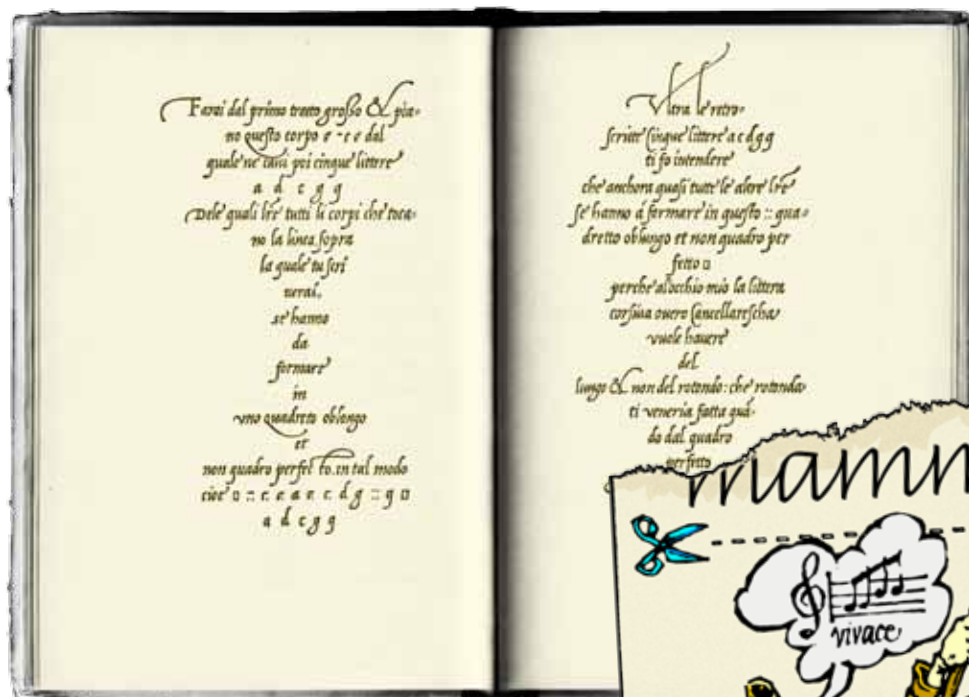 Farai dal primo tratto grosso & pia-
no questo corpo o - c e dal
quale ne cavi poi cinque littere
a d c g g
Dele quali lre tutti li corpi che toca-
no la linea, sopra
la quale tu scri
verai,
se hanno
da
formare
in
uno quadreto oblongo
et
non quadro perfetto. in tal modo
cioe
a d c g g
Ultra le retro-
scritte cinque littere a c d g g
ti fo intendere
che anchora quasi tutte le altre lre
se hanno á formare in questo :: qua-
dretto oblungo et non quadro per
fetto □
perche al'occhio mio la littera
corsiva overo Cancellarescha
vuole havere
del
lungo & non del rotondo: che rotonda
ti veneria fatta quá-
do dal quadro
perfetto
vivace